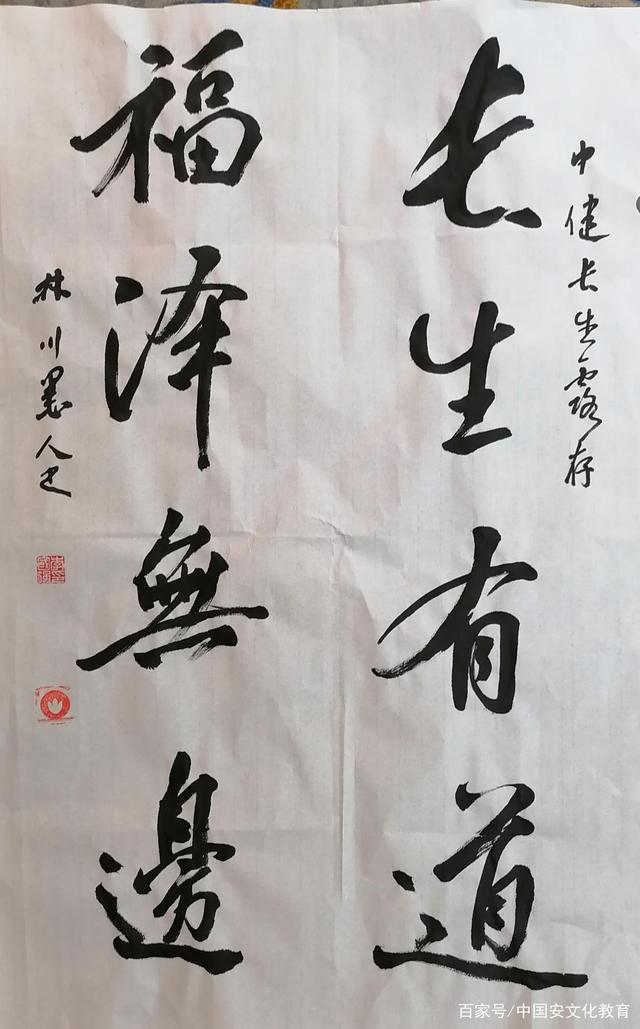 中健长生露存
长生有道
福泽無邊
林川墨人书
百家号/中国安文化教育